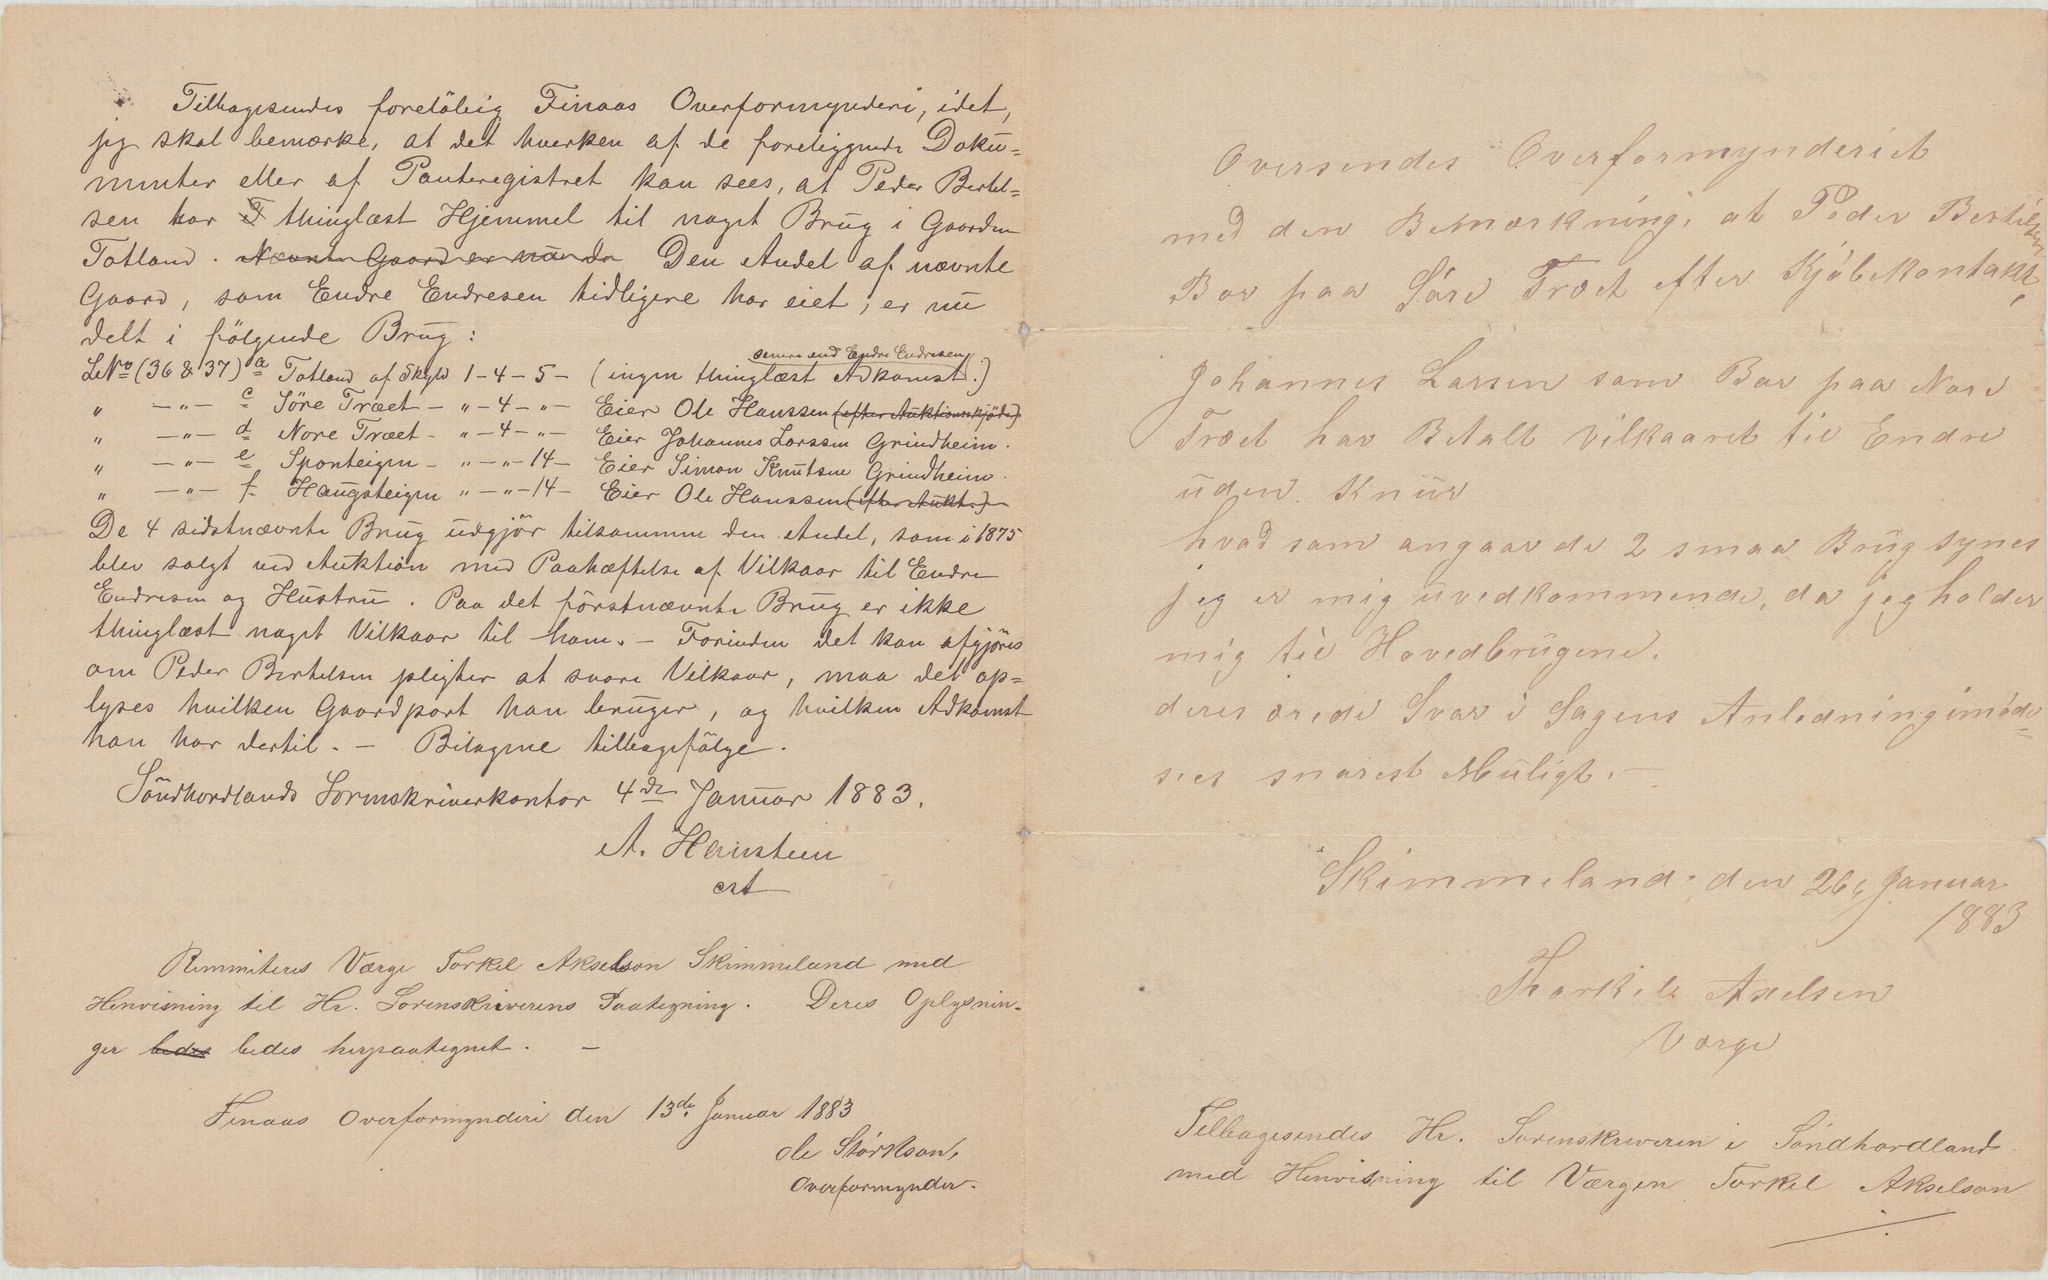 Tilbagesendes foreløbig Finaas Overformynderi, idet,
jeg skal bemærke, at det hverken af de foreliggende Doku=
menter eller af Panteregistret kan sees, at Peder Bertel=
sen har thinglæst Hjemmel til noget Brug i Gaarden
Totland. Nævnte Gaard er nu de Den Andel af nævnte
Gaard, som Endre Endresen tidligere har eiet, er nu
delt i følgende Brug:
senere end Endre Endresen
LNo (36 & 37) a Totland af Skyld 1-4-5- (ingen thinglæst Adkomst.)
" -"- c Söre Træet - "-4-"- Eier Ole Hanssen (efter Auktionsskjöde)
" -"- d Nore Træet - "-4-"- Eier Johannes Larssen Grindheim.
" -"- e Sponteigen - "-"-14- Eier Simon Knutsen Grindheim.
" -"- f Haugsteigen "-"-14- Eier Ole Hanssen (efter Aukt.)
De 4 sidstnævnte Brug udgjör tilsammen den Andel, som i 1875
blev solgt ved Auktion med Paahæftelse af Vilkaar til Endre
Endresen og Hustru. Paa det förstnævnte Brug er ikke
thinglæst noget Vilkaar til ham. - Forinden det kan afgjöres
om Peder Bertelsen pligter at svare Vilkaar, maa det op=
lyses hvilken Gaardpart han bruger, og hvilken Adkomst
han har dertil. - Bilagene tilbagefölge.
Söndhordlands Sorenskriverkontor 4de Januar 1883.
A. Hansteen
cst
Remmiteres Værge Torkel Akselson Skimmeland med
Henvisning til Hr. Sorenskriverens Paategning. Deres Oplysnin-
ger bedes bedes herpaategnet. -
Finaas Overformynderi den 13de Januar 1883
Ole Störkson,
Overformynder.
Oversendes Overformynderiet
med den Bemærkning, at Peder Bertilsen
Bor paa Söre Træet efter Kjöbekontakt,
Johannes Larsen som Bor paa Nore
Træet har Betalt Vilkaaret til Endre
uden Knur
hvad som angaar de 2 smaa Brug synes
jeg er mig uvedkommende, da jeg holder
mig til Hovedbrugene.
deres ærede Svar i Sagens Anledning imöde=
sees snarest Muligt. -
Skimmeland, den 26 Januar
1883
Thorkil Axelsen
Værge
Tilbagesendes Hr. Sorenskriveren i Söndhordland
med Henvisning til Værgen Torkel Akselson